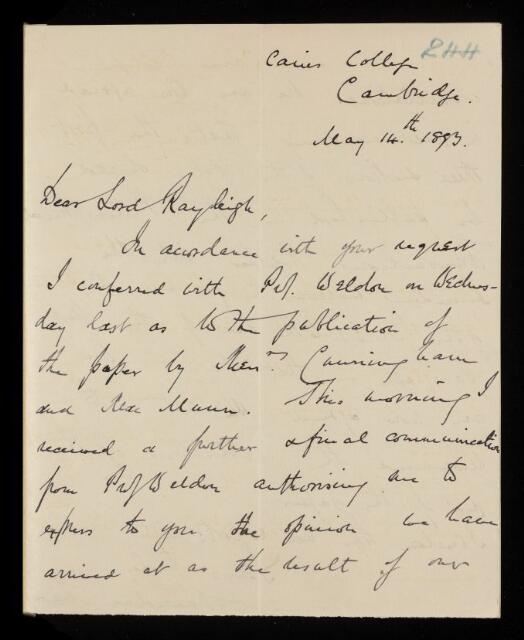 244
Caius College
Cambridge.
May 14.th 1893.
Dear Lord Rayleigh,
In acordance with your request
I conferred with Prof. Weldon on Wednes-
day last as to the publication of
the paper by Mess.rs Cunningham
and Rex Mann. This morning I
received a further & final communication
from Prof Weldon authorising me to
express to you the opinion we have
arrived at as the result of our